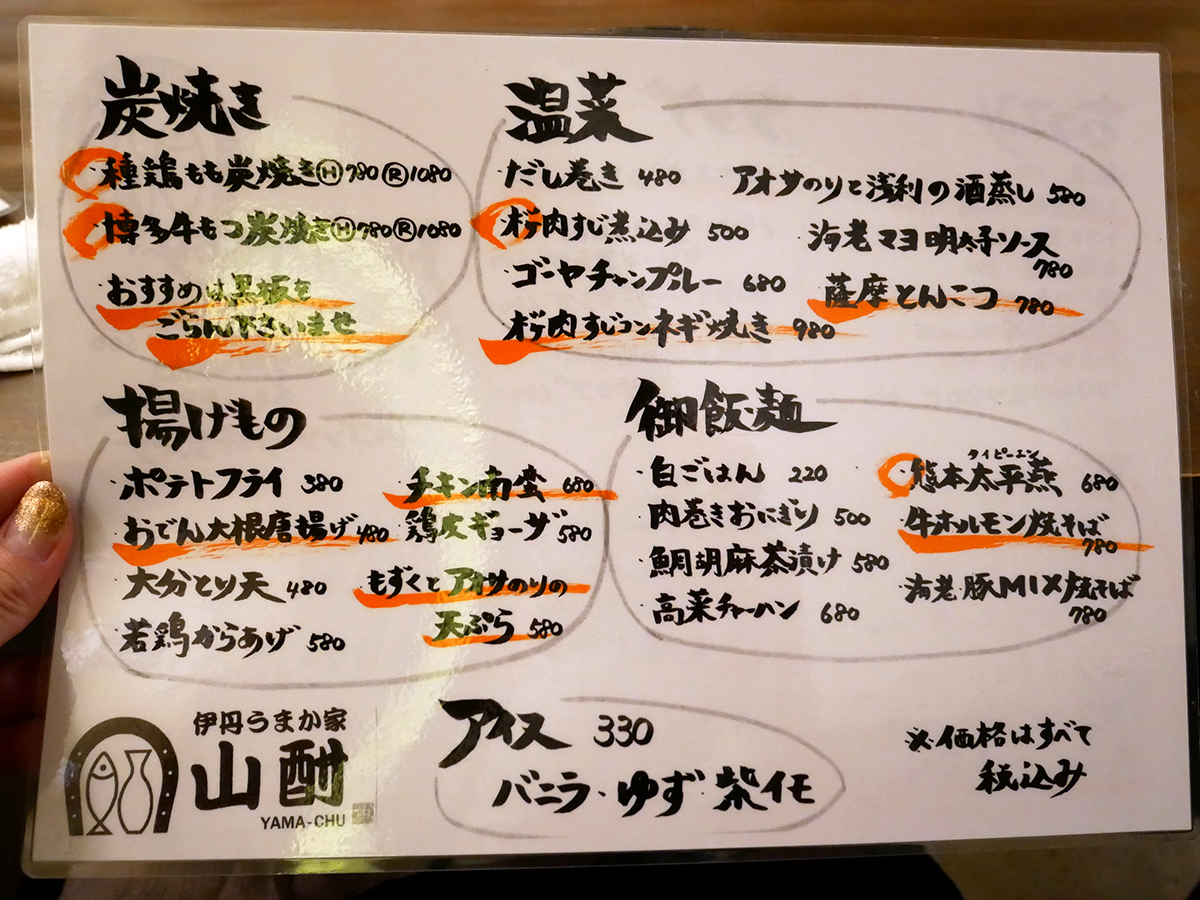 炭焼き
・種鶏もも炭焼きⒽ780Ⓡ1080
・博多牛もつ炭焼きⒽ780Ⓡ1080
・おすすめは黒板を
ごらん下さいませ
温菜
・だし巻き 480
・桜肉すじ煮込み 500
・ゴーヤチャンプルー 680
・桜肉すじコンネギ焼き 980
・アオサのりと浅利の酒蒸し 580
・海老マヨ明太子ソース
780
・薩摩とんこつ 780
揚げもの
・ポテトフライ 380
・おでん大根唐揚げ 480
・大分とり天 480
・若鶏からあげ 580
・チキン南蛮 680
・鶏皮ギョーザ 580
・もずくとアオサのりの
天ぷら 580
御飯・麺
・白ごはん 220
・肉巻きおにぎり 500
・鯛胡麻茶漬け 580
・高菜チャーハン 680
タイピーエン
・熊本太平燕 680
・牛ホルモン焼そば
780
・海老・豚MIX焼そば
780
伊丹うまか家
山酎
YAMA-CHU
アイス 330
バニラ・ゆず・紫イモ
※価格はすべて
税込み